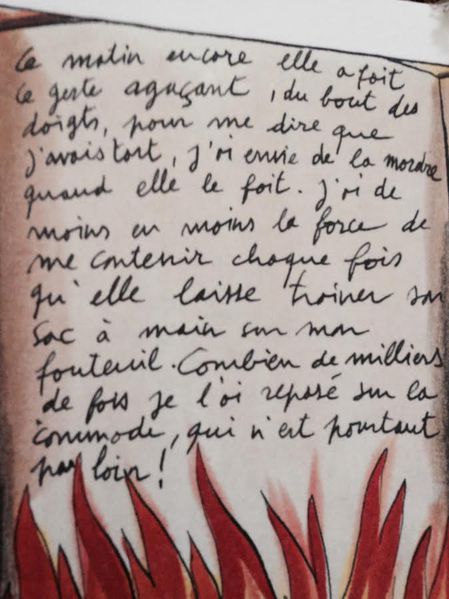 Ce matin encore elle a fait
ce geste agaçant, du bout des
doigts, pour me dire que
j'avais tort, j'ai envie de la mordre
quand elle le fait. J'ai de
moins en moins la force de
me contenir chaque fois
qu'elle laisse trainer son
sac à main sur mon
fauteuil. Combien de milliers
de fois je l'ai reposé sur la
commode, qui n'est pourtant
pas loin !